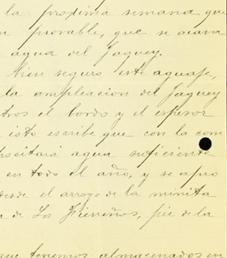 la próxima semana que
provable, que se
agua del jaguey.
Bien seguro este aguaje,
la ampliacion del jaguey
tros el bordo y el espesor
isto escribe que con la com
positará agua suficiente
en todo el año, y se apro
desde el arroyo de la minita
de Los de la
que tenemos almacenados en